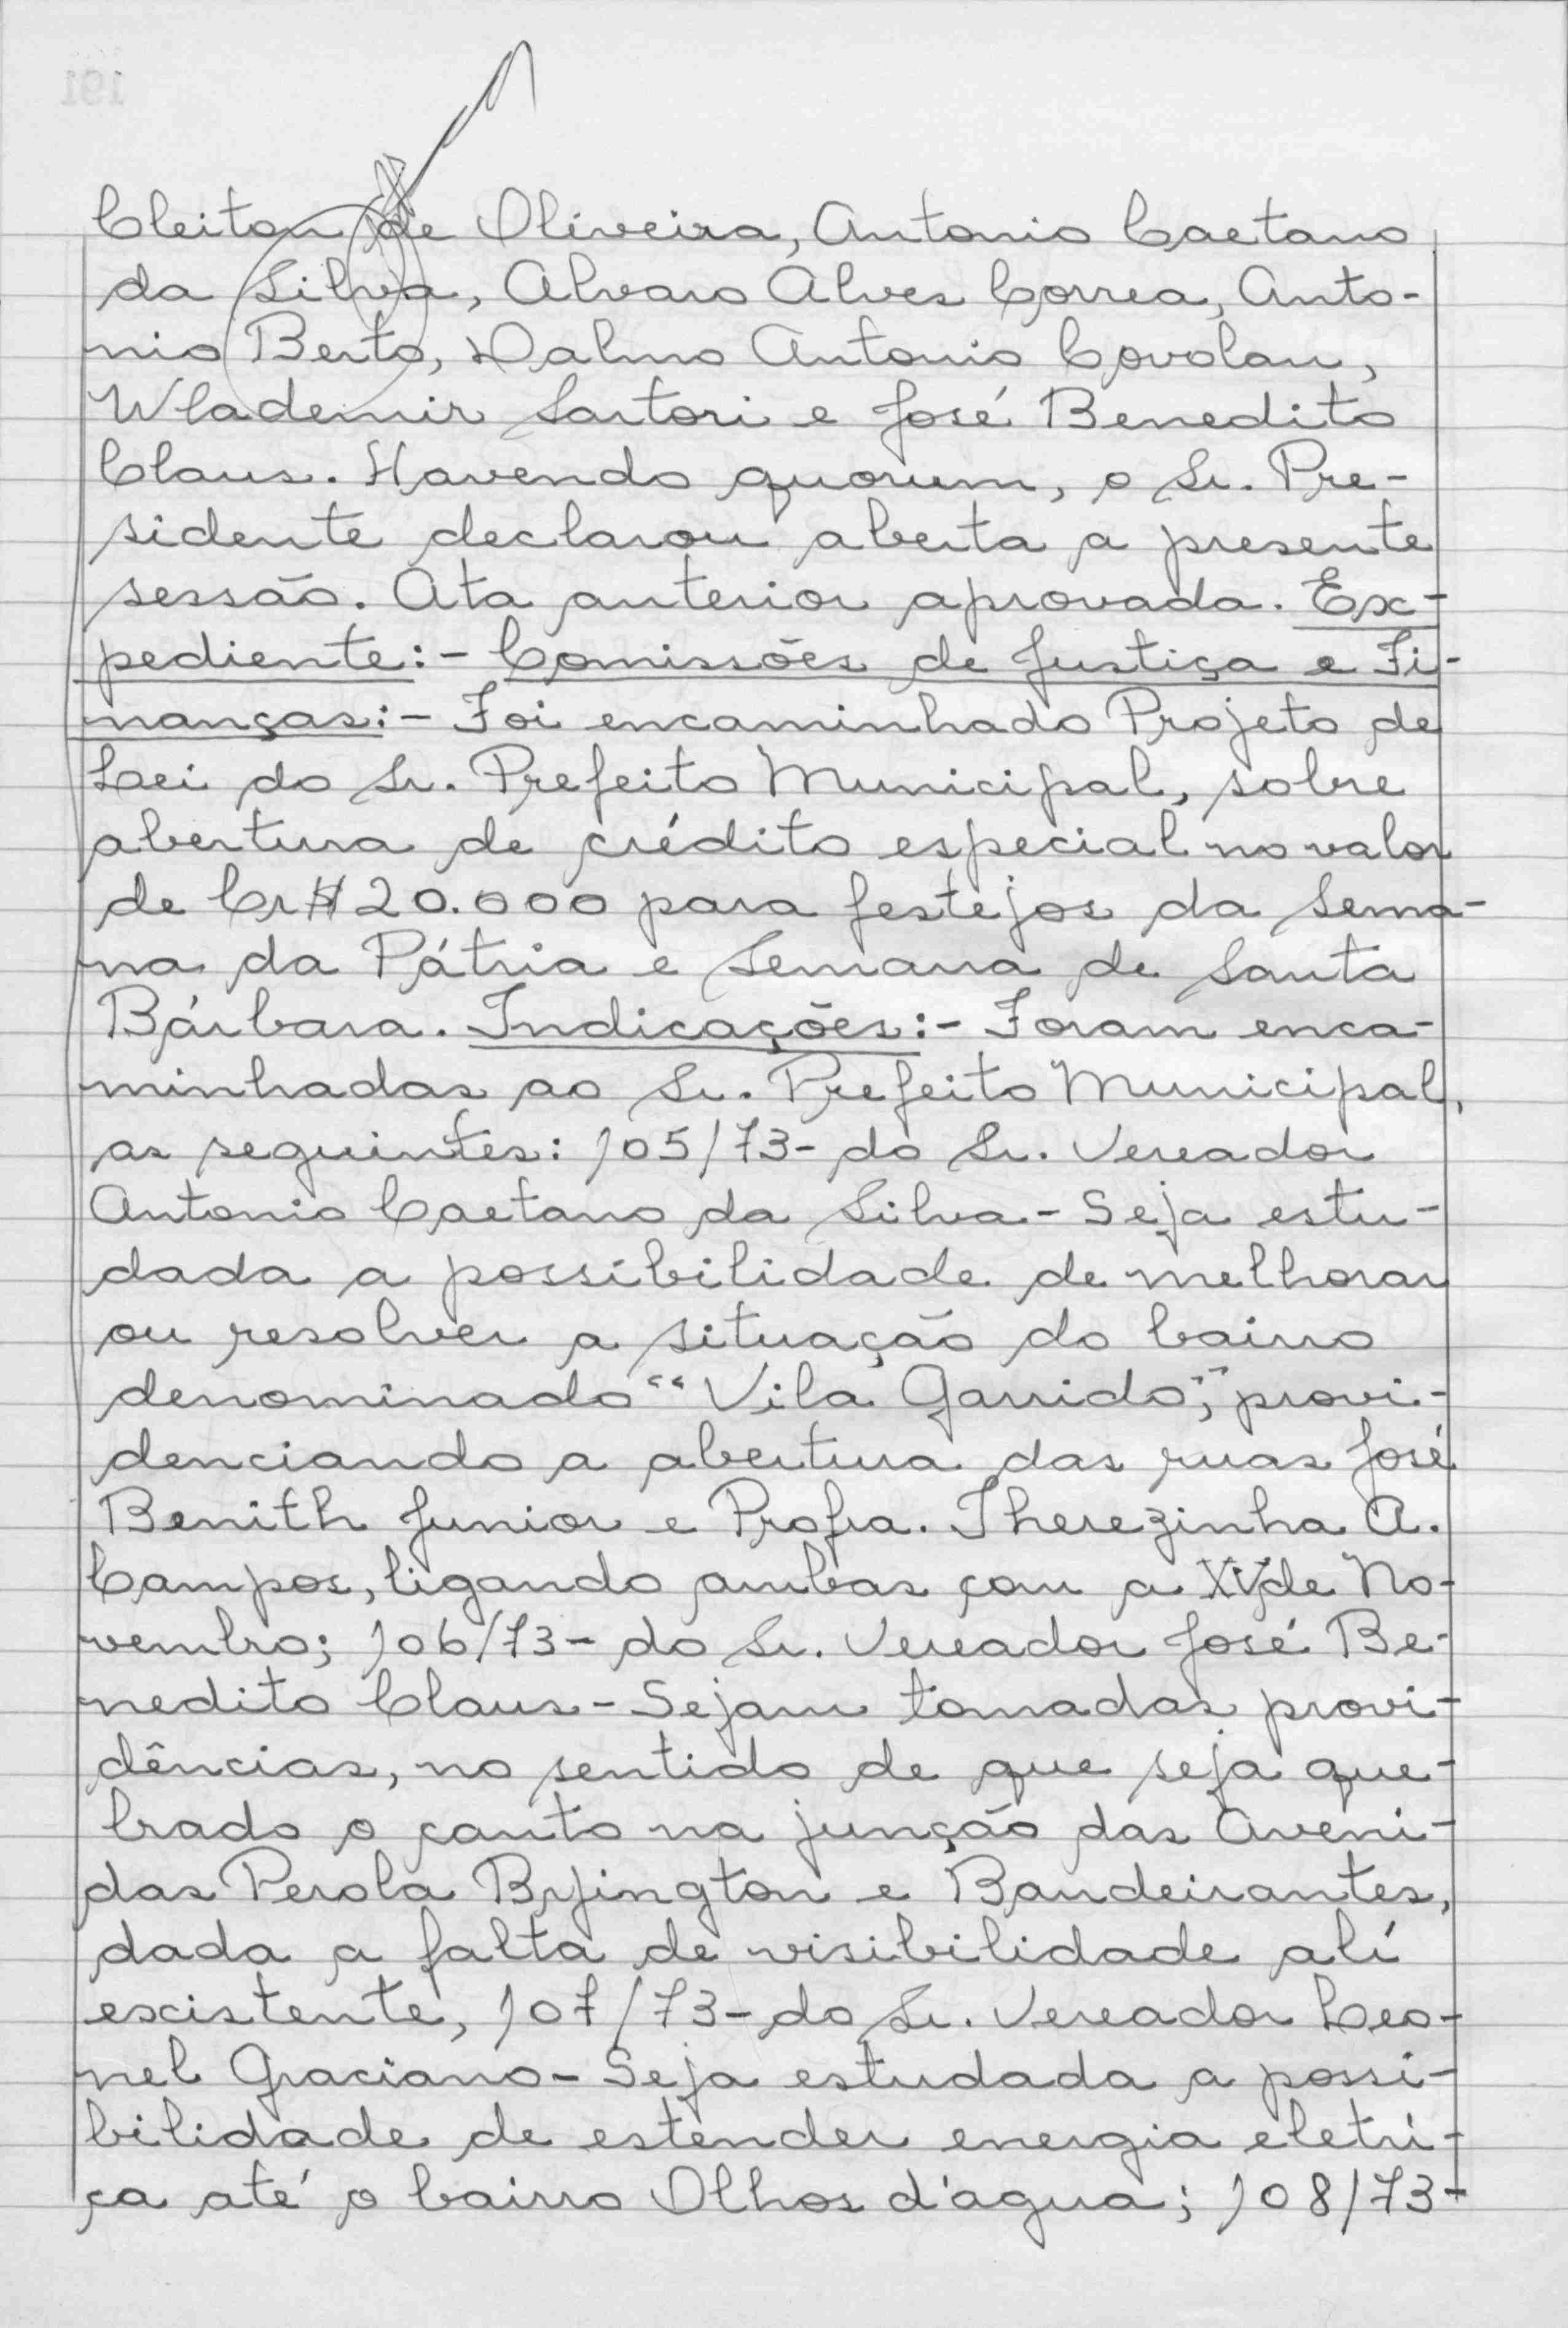 Cleiton de Oliveira, Antonio Caetano
da Silva, Alvaro Alves Correa, Anto-
nio Berto, Dalmo Antonio Covolan,
Wlademir Sartori e José Benedito
Claus. Havendo quorum, o Sr. Pre-
sidente declarou aberta a presente
sessão. Ata anterior aprovada. Ex-
pediente:- Comissões de Justiça e Fi-
nanças:- Foi encaminhado Projeto de
Lei do Sr. Prefeito Municipal, sobre
abertura de crédito especial no valor
de Cr$ 20.000 para festejos da Sema-
na da Pátria e Semana de Santa
Bárbara. Indicações:- Foram enca-
minhadas ao Sr. Prefeito Municipal,
as seguintes: 105/73- do Sr. Vereador
Antonio Caetano da Silva - Seja estu-
dada a possibilidade de melhorar
ou resolver a situação do bairro
denominado "Vila Garrido", provi-
denciando a abertura das ruas José
Benith Junior e Profra. Therezinha A.
Campos, ligando ambas com a XV de No-
vembro; 106/73- do Sr. Vereador José Be-
nedito Claus - Sejam tomadas provi-
dências, no sentido de que seja que-
brado o canto na junção das Aveni-
das Perola Bryington e Bandeirantes,
dada a falta de visibilidade alí
existente, 107/73- do Sr. Vereador Leo-
nel Graciano - Seja estudada a possi-
bilidade de estender energia eletri-
ca até o bairro Olhos d'agua; 108/73-
191